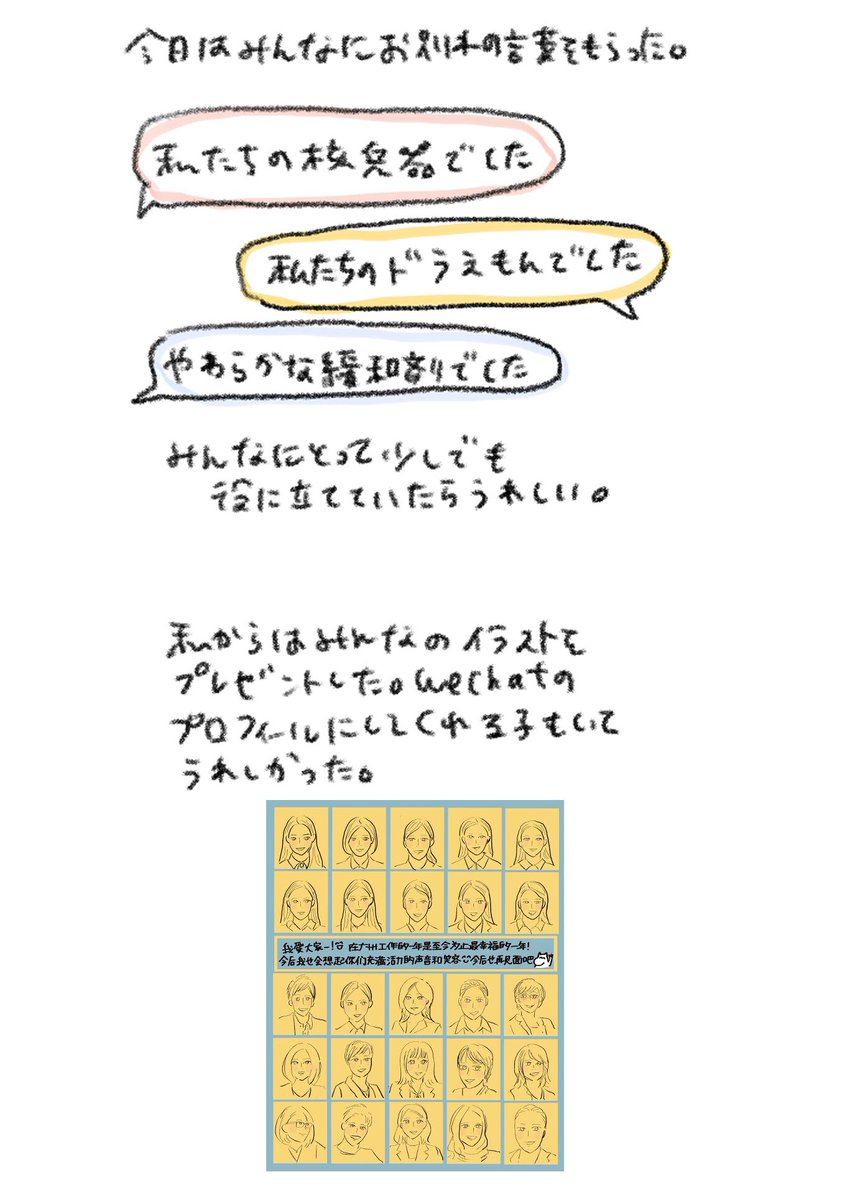 今日はみんなにお別れの言葉をもらった。
私たちの核兵器でした
私たちのドラえもんでした
やわらかな緩和剤でした
みんなにとって少しでも
役に立てていたらうれしい。
私からはみんなのイラストを
プレゼントした。wechatの
プロフィールにしてくれる子もいて
うれしかった。
我爱大家~! 在广州工作的一年是至今为止最幸福的一年!
今后我也会想起你们充满活力的声音和笑容 今后也再见面吧